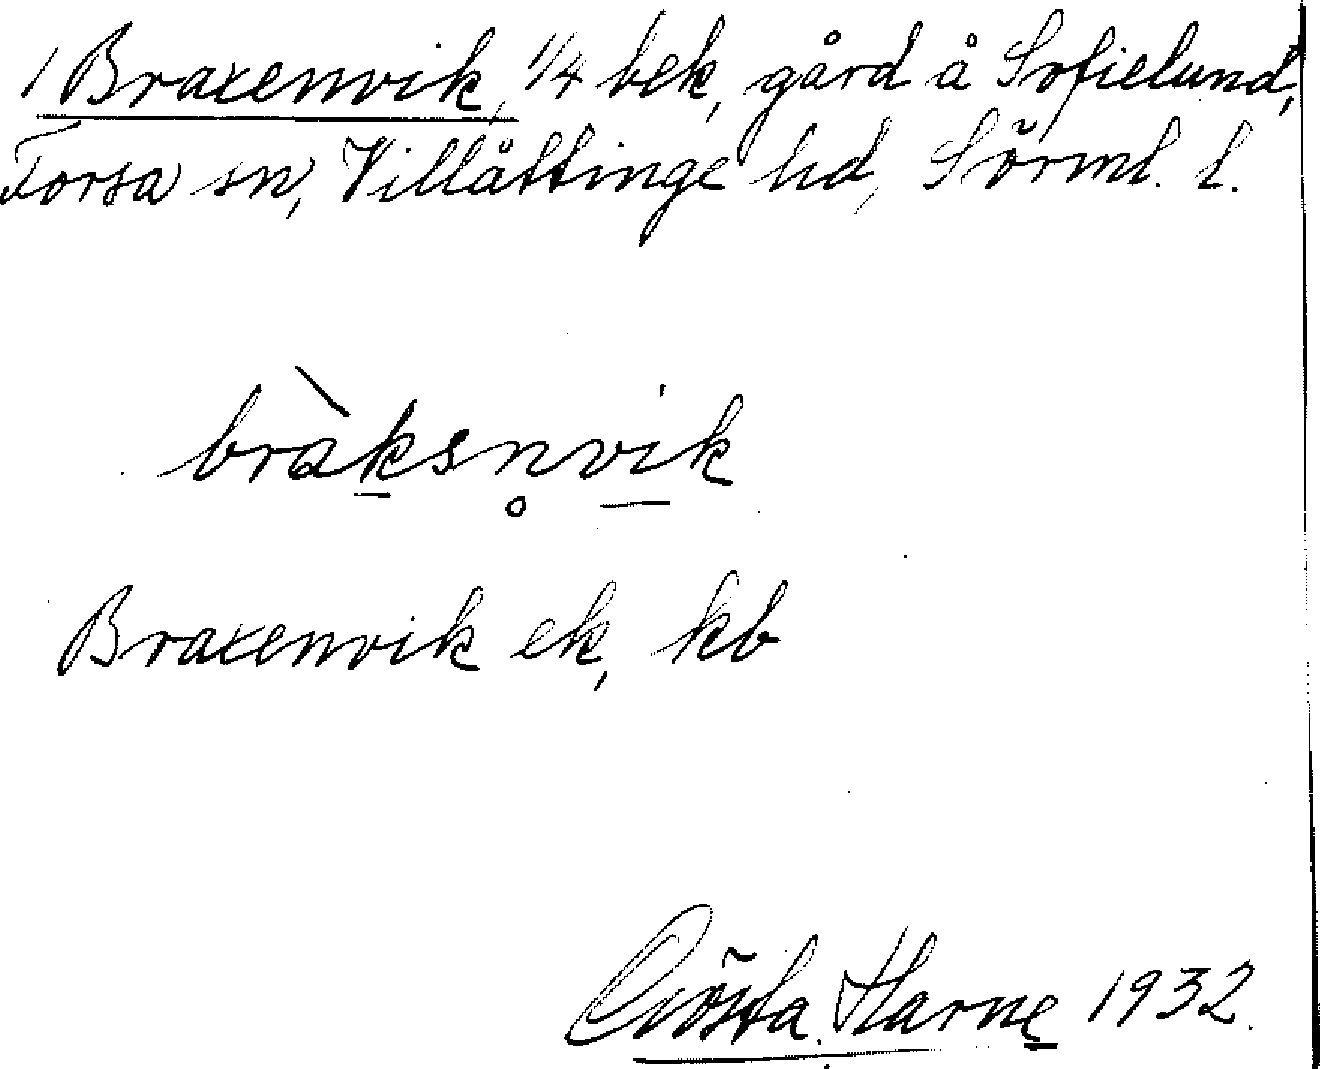 1 Braxenvik, 1/4 bek, gård å Sofielund,
Forsa sn, Villåttinge hd, Sörml. l.
bràksn̥vik
Braxenvik ek, kb
Gösta Harne 1932.